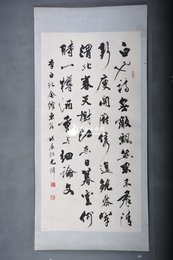 白也詩無敵飄然思不群清
新庾開府俊逸鮑參軍
渭北春天樹江東日暮雲何
時一樽酒重與細論文
李白紀念館